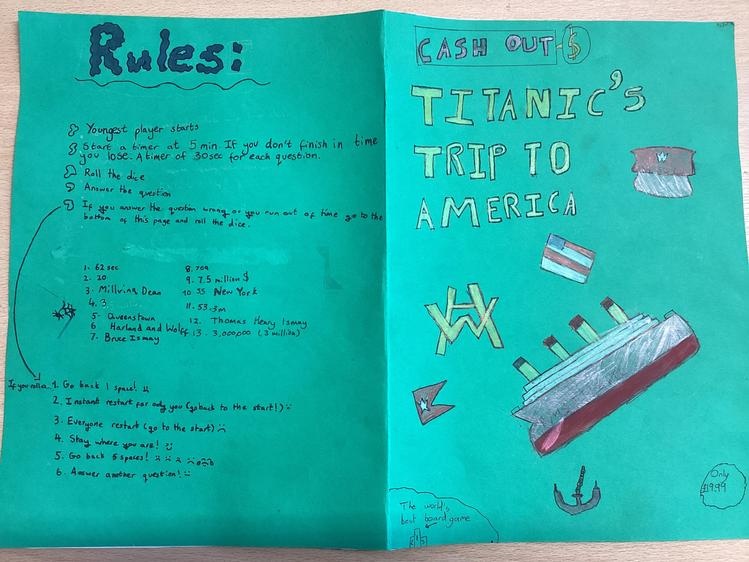 Rules:
Youngest player starts
Start a timer at 5 min. If you don't finish in time
you lose. A timer of 30sec for each question.
Roll the dice
Answer the question
If you answer the question wrong or you run out of time go to the
bottom of this page and roll the dice.
1. 62 sec
2. 20
3. Millvina Dean
4. 3
5. Queenstown
6 Harland and Wolff
7. Bruce Ismay
8. 709
9. 7.5 million $
10. SS New York
11. 53.3m
12. Thomas Henry Ismay
13. 3,000,000 (3 million)
If you roll a... 1. Go back 1 space!
2. Instant restart for only you (go back to the start!)
3. Everyone restart (go to the start)
4. Stay where you are!
5. Go back 5 spaces!
6. Answer another question!
CASH OUT $
TITANIC'S
TRIP TO
AMERICA
The world's
best board game
Only
$19.99